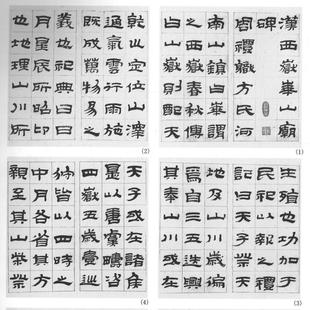 漢西嶽華山廟
碑
周禮職方氏河
南山鎮曰華謂
之西嶽春秋傳
曰山嶽則配天
(1)
乾坤定位山澤
通氣雲行雨施
既成萬物易之
義也祀典曰日
月星辰所昭卬
也地理山川所
(2)
生殖也功加於
民祀以報之禮
記曰天子祭天
地及山川歲徧
焉自三五迭興
其奉山川或在
(3)
天子或在諸侯
是以唐虞疇咨
四嶽五歲壹巡
狩皆以四時之
中月各省其方
親至其山柴祭
(4)